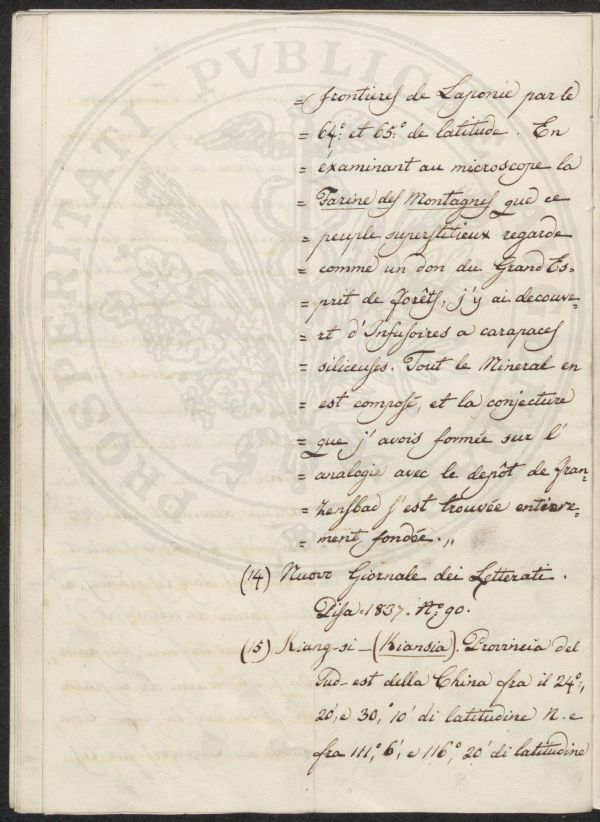 PROSPERITATI PVBLIC
= frontieres de Laponie par le
= 64.° et 65.° de latitude. En
= éxaminant au microscope la
= Farine des Montagnes que ce
= peuple superstitieux regarde
= comme un don du Grand Es=
= prit de forêts, j'y ai decouve=
= rt d'Infusoires a carapaces
= siliceuses. Tout le Mineral en
= est composé, et la conjecture
= que j'avois formée sur l'
= analogie avec le depôt de Fran=
= zensbad s'est trouvée entiere=
= ment fondée.„
(14) Nuovo Giornale dei Letterati.
Pisa. 1837. N.° 90.
(15) Kiang-si – (Kiansia). Provincia del
Sud-est della China fra il 24°,
20', e 30,° 10' di latitudine N. e
fra 111,° 6', e 116,° 20' di latitudine